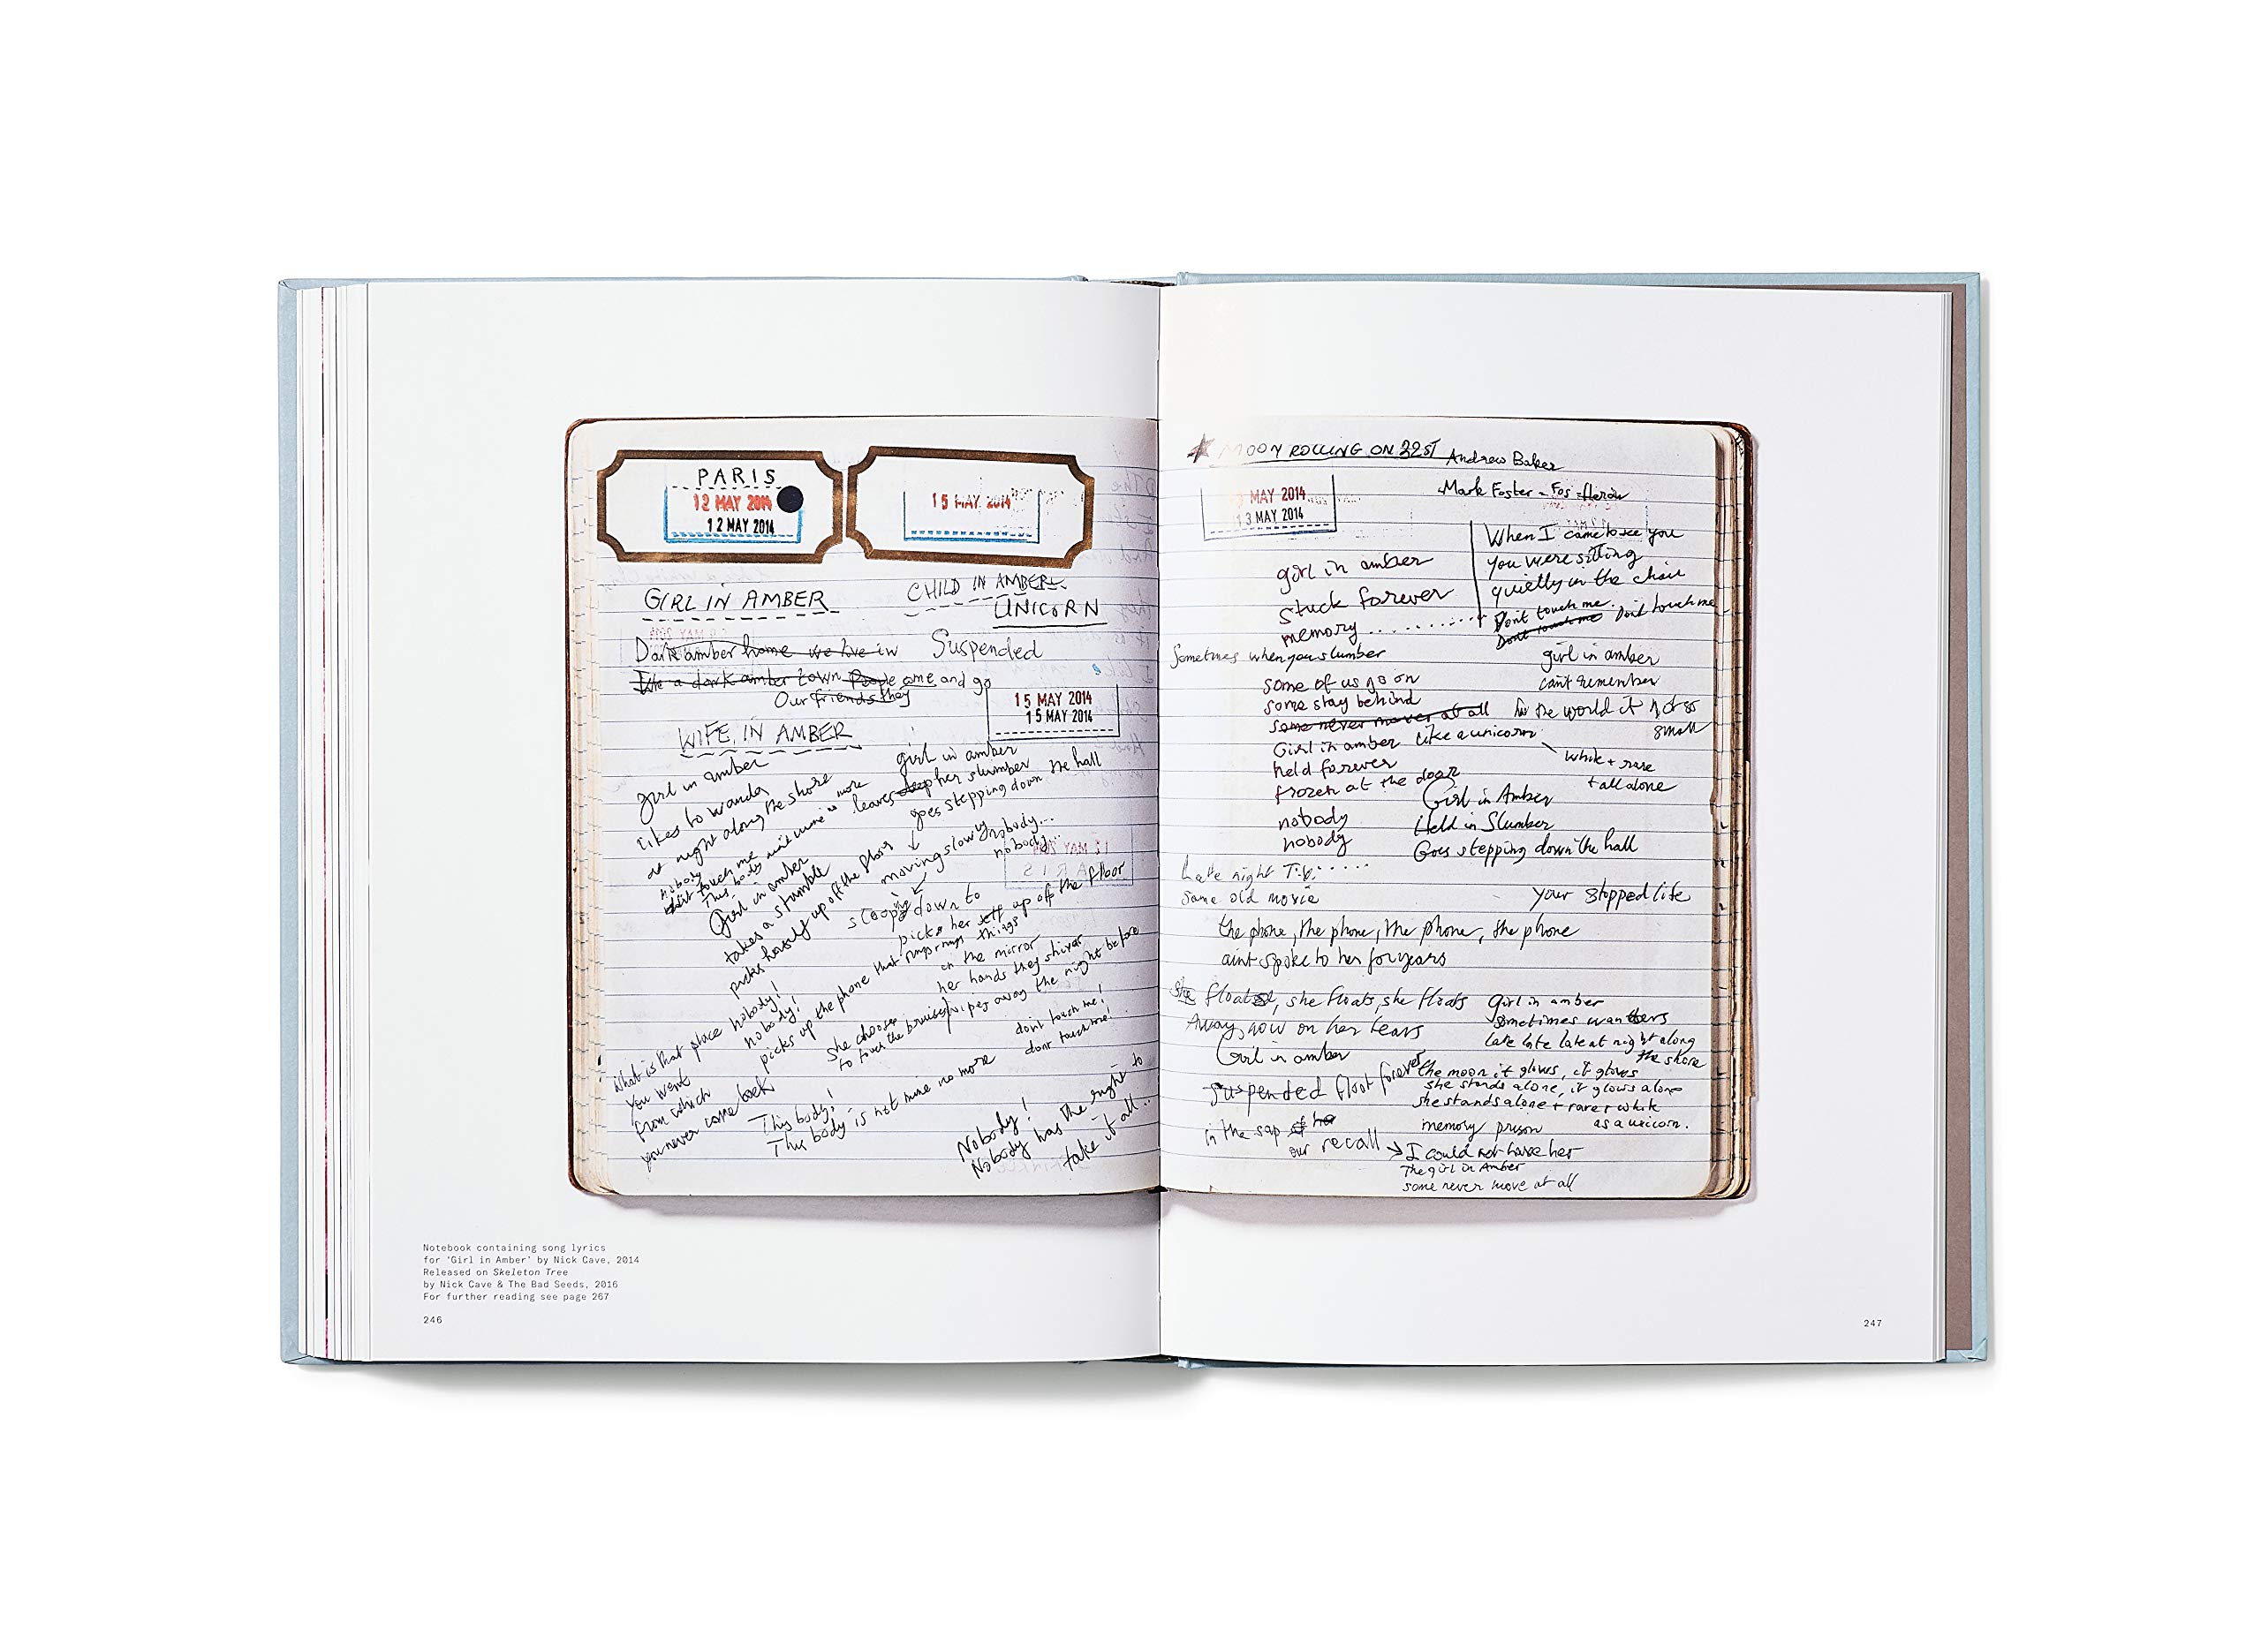 PARIS
12 MAY 2014
12 MAY 2014
15 MAY 2014
GIRL IN AMBER
CHILD IN AMBER
UNICORN
Dark amber home we live in
Suspended
like a dark amber town People come and go
Our friends they
15 MAY 2014
15 MAY 2014
WIFE IN AMBER
girl in amber
likes to wander
at night along the shore
nobody
dont touch me
This body aint mine no more
girl in amber
leaves her slumber
goes stepping down the hall
moving slowly
nobody...
nobody...
Girl in amber
takes a stumble
picks herself up off the floor
stoops down to
picks her self up off the floor
nobody!
nobody!
picks up the phone that rings rings things
in the mirror
her hands they shiver
She chooses
to touch the bruises
wipes away the night before
dont touch me!
dont touch me!
What is that place
you went
from which
you never come back
This body!
This body is not mine no more
Nobody!
Nobody has the right to
take it all..
MOON ROLLING ON 22ST
Andrew Baker
Mark Foster - Fos
MAY 2014
13 MAY 2014
girl in amber
stuck forever
memory..........
When I came to see you
you were sitting
quietly in the chair
Dont touch me. Dont touch me
Dont touch me
Sometimes when you slumber
some of us go on
some stay behind
some never move at all
Girl in amber like a unicorn
held forever
frozen at the door
nobody
nobody
girl in amber
cant remember
the world it
small
white + rare
+ all alone
Girl in Amber
Held in Slumber
Goes stepping down the hall
Late night T.V......
same old movie
your stopped life
the phone, the phone, the phone, the phone
aint spoke to her for years
She floats, she floats, she floats
Away, now on her tears
Girl in amber
suspended float forever
in the sap of her
our recall
Girl in amber
sometimes wanders
late late late at night along
the shore
the moon it glows, it glows
she stands alone, it glows alone
she stands alone + rare + white
as a unicorn.
memory prison
I could not have her
The girl in Amber
some never move at all
Notebook containing song lyrics
for 'Girl in Amber' by Nick Cave, 2014
Released on Skeleton Tree
by Nick Cave & The Bad Seeds, 2016
For further reading see page 267
246
247